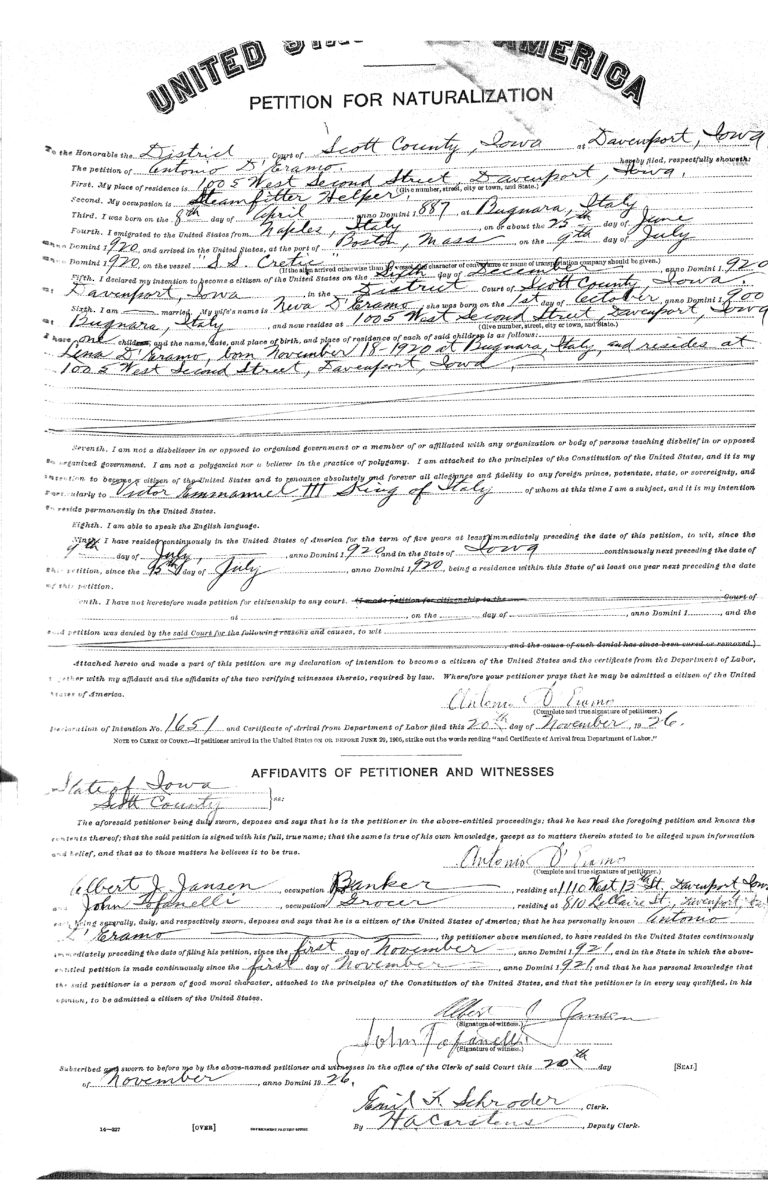 UNITED STATES OF AMERICA
PETITION FOR NATURALIZATION
To the Honorable the District Court of Scott County, Iowa at Davenport, Iowa
The petition of Antonio D'Eramo. hereby filed, respectfully showeth:
First. My place of residence is 1005 West Second Street, Davenport, Iowa.
(Give number, street, city or town, and State.)
Second. My occupation is Steamfitter Helper.
Third. I was born on the 8th day of April anno Domini 1887 at Bugnara, Italy
Fourth. I emigrated to the United States from Naples, Italy, on or about the 25th day of June
anno Domini 1920, and arrived in the United States, at the port of Boston, Mass on the 9th day of July
anno Domini 1920, on the vessel "S.S. Cretic"
(If the alien arrived otherwise than by vessel, the character of conveyance or name of transportation company should be given.)
Fifth. I declared my intention to become a citizen of the United States on the Sixth day of December, anno Domini 1920
at Davenport, Iowa, in the District Court of Scott County, Iowa.
Sixth. I am married. My wife's name is Neva D'Eramo, she was born on the 1st day of October, anno Domini 1900
at Bugnara, Italy, and now resides at 1005 West Second Street, Davenport, Iowa
(Give number, street, city or town, and State.)
I have one children, and the name, date, and place of birth, and place of residence of each of said children is as follows:
Lena D'Eramo, born November 18-1920 at Bugnara, Italy, and resides at
1005 West Second Street, Davenport, Iowa.
Seventh. I am not a disbeliever in or opposed to organized government or a member of or affiliated with any organization or body of persons teaching disbelief in or opposed
to organized government. I am not a polygamist nor a believer in the practice of polygamy. I am attached to the principles of the Constitution of the United States, and it is my
intention to become a citizen of the United States and to renounce absolutely and forever all allegiance and fidelity to any foreign prince, potentate, state, or sovereignty, and
particularly to Victor Emmanuel III King of Italy of whom at this time I am a subject, and it is my intention
to reside permanently in the United States.
Eighth. I am able to speak the English language.
Ninth. I have resided continuously in the United States of America for the term of five years at least immediately preceding the date of this petition, to wit, since the
9th day of July, anno Domini 1920, and in the State of Iowa continuously next preceding the date of
this petition, since the day of July anno Domini 1920, being a residence within this State of at least one year next preceding the date
of this petition.
Tenth. I have not heretofore made petition for citizenship to any court. (I made petition for citizenship to the Court of
at , on the day of , anno Domini 1 , and the
said petition was denied by the said Court for the following reasons and causes, to wit
, and the cause of such denial has since been cured or removed.)
Attached hereto and made a part of this petition are my declaration of intention to become a citizen of the United States and the certificate from the Department of Labor,
together with my affidavit and the affidavits of the two verifying witnesses thereto, required by law. Wherefore your petitioner prays that he may be admitted a citizen of the United
States of America.
Antonio D'Eramo
(Complete and true signature of petitioner.)
Declaration of Intention No. 1651 and Certificate of Arrival from Department of Labor filed this 20th day of November, 1926.
NOTE TO CLERK OF COURT.—If petitioner arrived in the United States ON OR BEFORE JUNE 29, 1906, strike out the words reading "and Certificate of Arrival from Department of Labor."
AFFIDAVITS OF PETITIONER AND WITNESSES
State of Iowa
Scott County } ss:
The aforesaid petitioner being duly sworn, deposes and says that he is the petitioner in the above-entitled proceedings; that he has read the foregoing petition and knows the
contents thereof; that the said petition is signed with his full, true name; that the same is true of his own knowledge, except as to matters therein stated to be alleged upon information
and belief, and that as to those matters he believes it to be true.
Antonio D'Eramo
(Complete and true signature of petitioner.)
Albert J. Jansen, occupation Banker, residing at 1110 West 13th St, Davenport, Iowa
and John Tofanelli, occupation Grocer, residing at 810 LeClaire St, Davenport, Ia.
each being severally, duly, and respectively sworn, deposes and says that he is a citizen of the United States of America; that he has personally known Antonio
D'Eramo, the petitioner above mentioned, to have resided in the United States continuously
immediately preceding the date of filing his petition, since the first day of November, anno Domini 1921, and in the State in which the above-
entitled petition is made continuously since the first day of November, anno Domini 1921, and that he has personal knowledge that
the said petitioner is a person of good moral character, attached to the principles of the Constitution of the United States, and that the petitioner is in every way qualified, in his
opinion, to be admitted a citizen of the United States.
Albert J Jansen
(Signature of witness.)
John Tofanelli
(Signature of witness.)
Subscribed and sworn to before me by the above-named petitioner and witnesses in the office of the Clerk of said Court this 20th day [SEAL]
of November, anno Domini 1926.
Emil F. Schroder, Clerk.
By H.A. Carstens, Deputy Clerk.
14-227 [OVER] GOVERNMENT PRINTING OFFICE